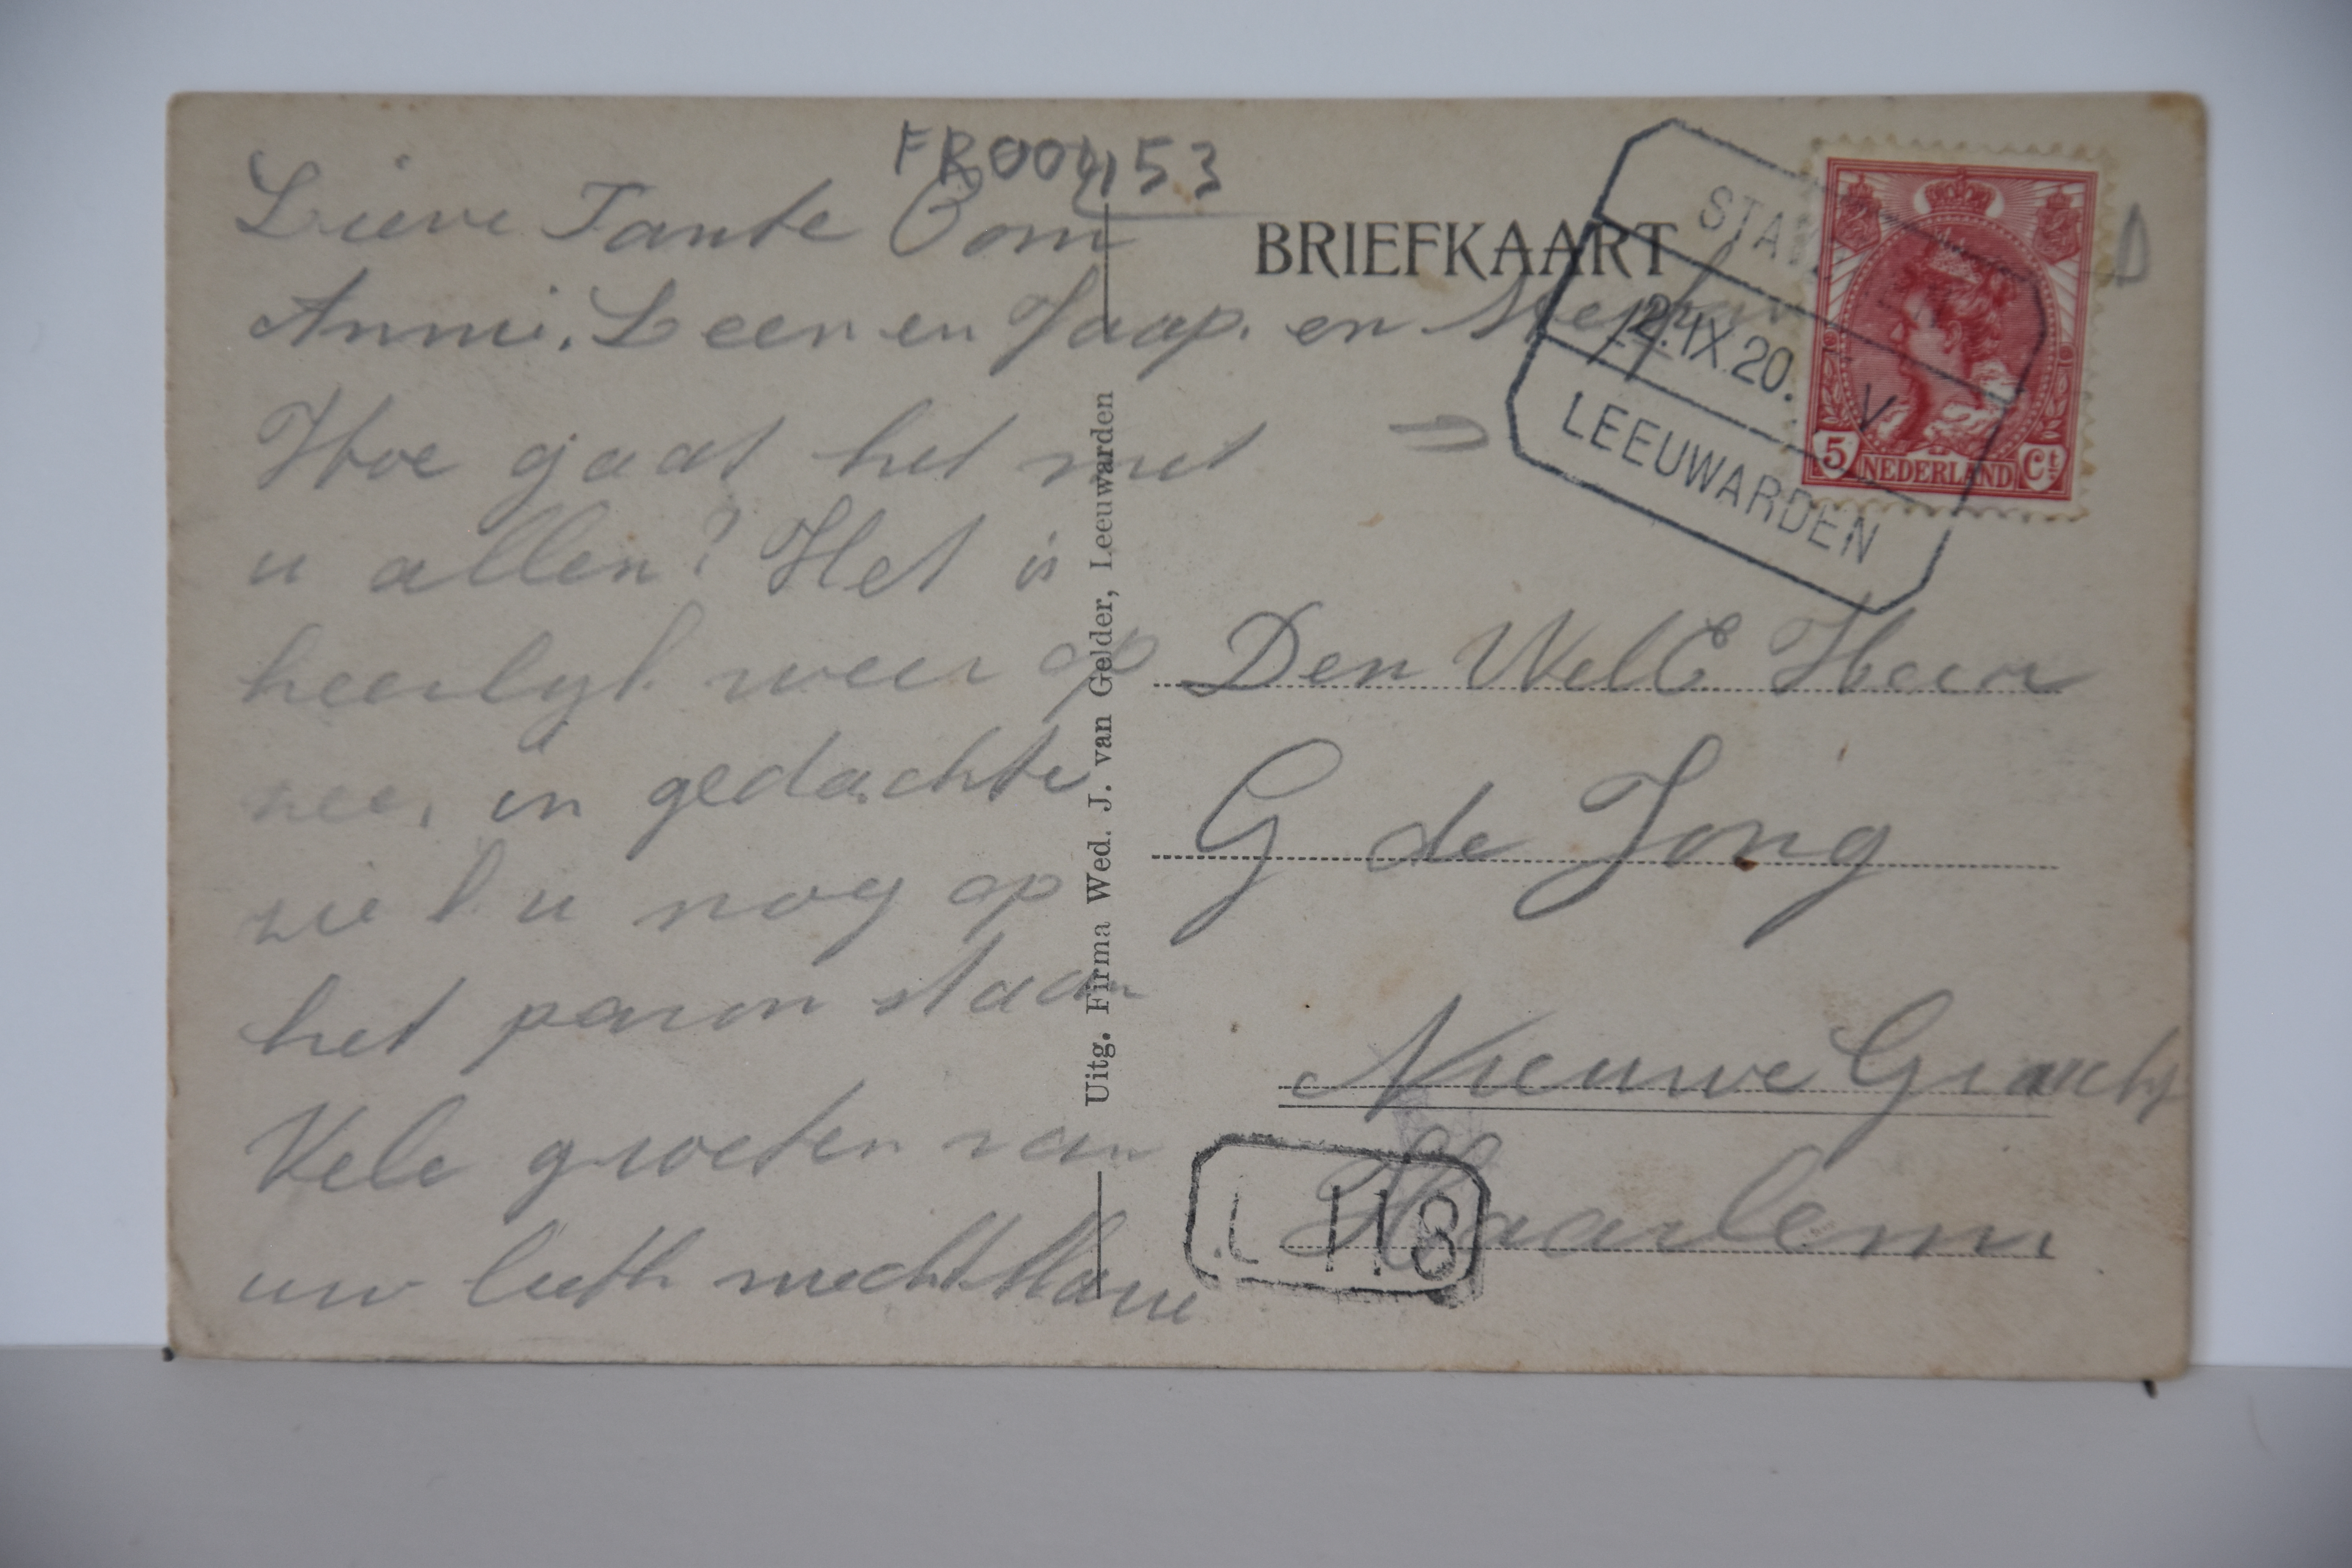 FR004153
Lieve Tante Oom
Anni, Leen en Jaap. en
Hoe gaat het met
u allen? Het is
heerlyk weer op
zee, in gedachte
zie k u nog op
het peron staan
Vele groeten van
uw liefh. nicht Marie
Uitg. Firma Wed. J. van Gelder, Leeuwarden
BRIEFKAART
2.IX.20. V
LEEUWARDEN
5 NEDERLAND Ct
Den WelE Heer
G de Jong
Nieuwe Gracht
Haarlem
L 118